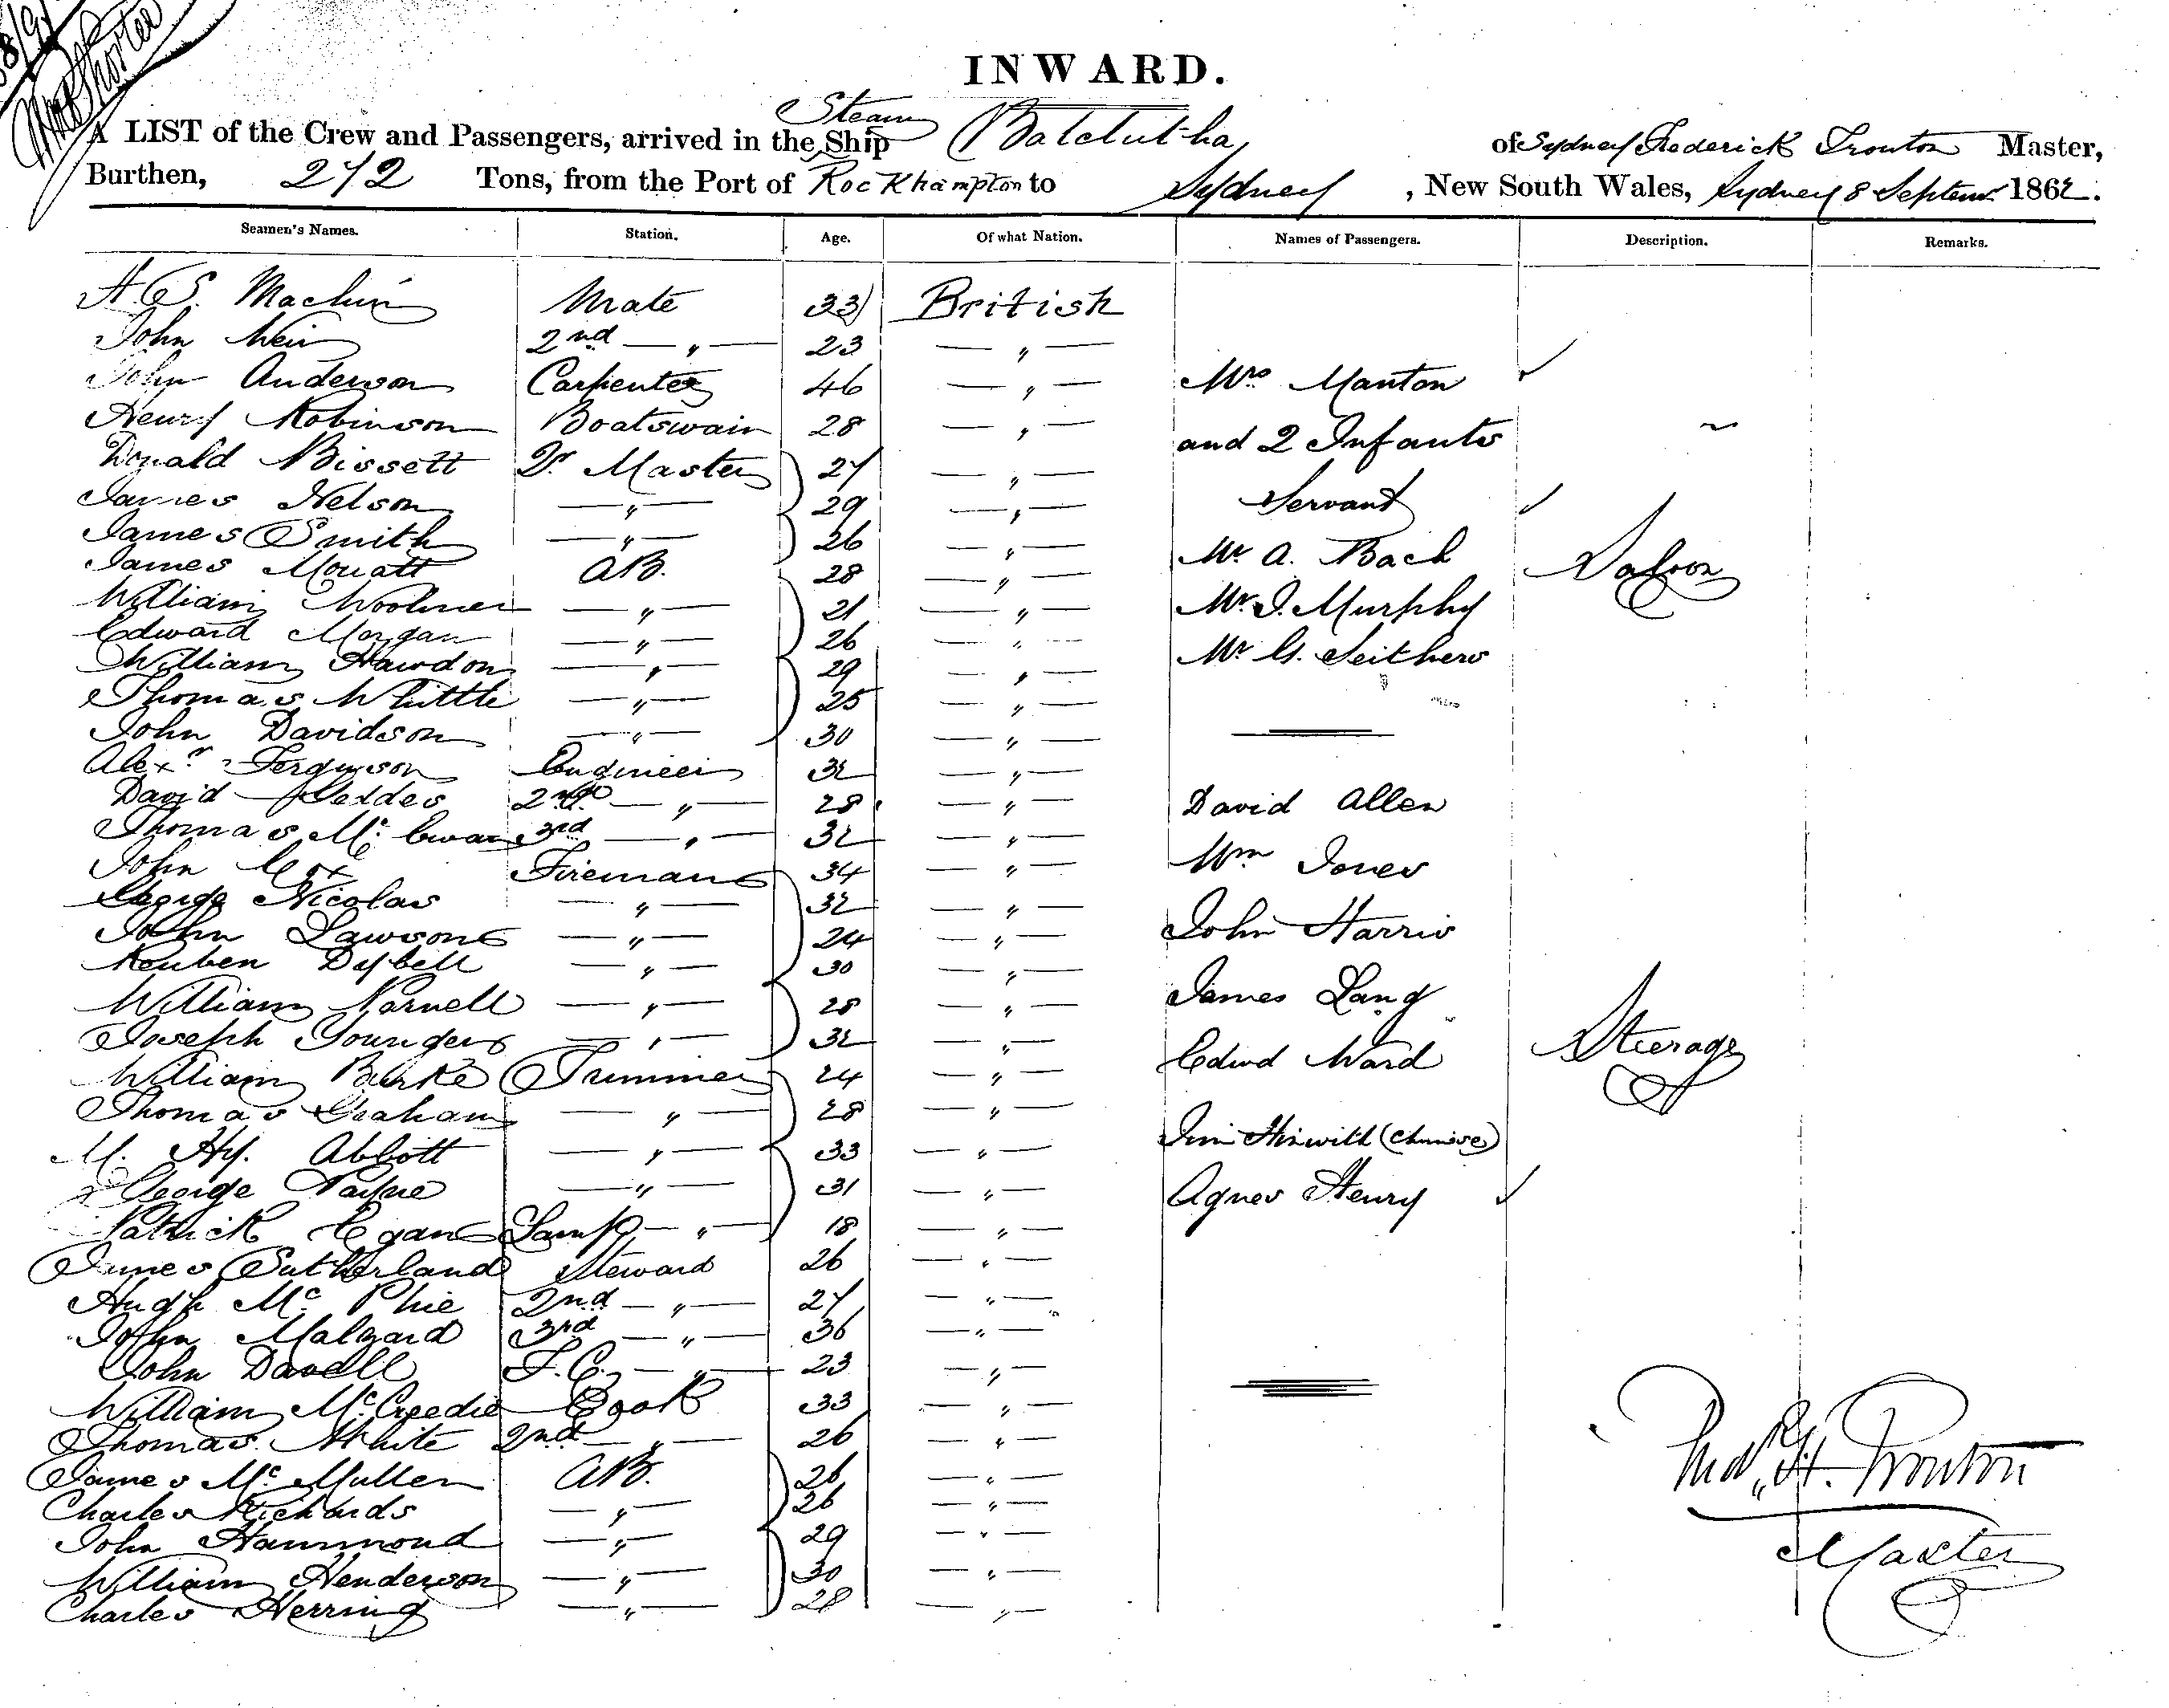 INWARD.
A LIST of the Crew and Passengers, arrived in the Steam Ship Balclutha, of Sydney Frederick Trouton Master,
Burthen, 272 Tons, from the Port of Rockhampton to Sydney, New South Wales, Sydney 8 Septem. 1862.
Seamen's Names. Station. Age. Of what Nation. Names of Passengers. Description. Remarks.
H. S. Machin Mate 33 British
John Weir 2nd — „ — 23 — „ —
John Anderson Carpenter 46 — „ — Mrs Manton
Henry Robinson Boatswain 28 — „ — and 2 Infants
Donald Bissett Qr. Master 27 — „ —
James Nelson — „ — 29 — „ — Servant
James Smith — „ — 26 — „ — Mr A. Bach Saloon
James Mouatt AB. 28 — „ —
William Woolmer — „ — 21 — „ — Mr J. Murphy
Edward Morgan — „ — 26 „
William Hawdon — „ — 29 — „ — Mr G. Seithers
Thomas Whittle — „ — 25 — „ —
John Davidson — „ — 30 — „ —
Alexr Ferguson Engineer 32 — „ —
David Geddes 2nd — „ — 28 — „ — David Allen
Thomas Mc Ewan 3rd — „ — 32 — „ —
John Cox Fireman 34 — „ — Wm Jones
George Nicolas — „ — 32 — „ —
John Lawson — „ — 24 — „ — John Harris
Reuben Dybell — „ — 30 — „ —
William Parnell — „ — 28 — „ — James Lang
Joseph Younger — „ — 32 — „ — Edwd Ward Steerage
William Burke Trimmer 24 — „ —
Thomas Graham — „ — 28 — „ —
M. Hy. Abbott — „ — 33 — „ — (Chinese)
George Payne — „ — 31 — „ — Agnes Henry
Patrick Egan Lamp — „ — 18 — „ —
James Sutherland Steward 26 — „ —
Hugh Mc Phie 2nd — „ — 27 — „ —
John Malzard 3rd — „ — 36 — „ —
John Davell F.C. — „ — 23 — „ —
William McCreedie Cook 33 — „ —
Thomas White 2nd — „ — 26 — „ —
James Mc Mullen AB. 26 — „ —
Charles Richards — „ — 26 — „ —
John Hammond — „ — 29 — „ —
William Henderson — „ — 30 — „ —
Charles Herring — „ — 28 — „ —
Fredk. H. Trouton
Master